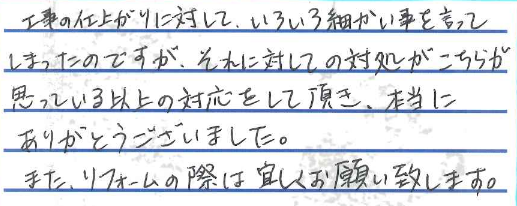 工事の仕上がりに対して、いろいろ細かい事を言って
しまったのですが、それに対しての対処がこちらが
思っている以上の対応をして頂き、本当に
ありがとうございました。
また、リフォームの際は宜しくお願い致します。